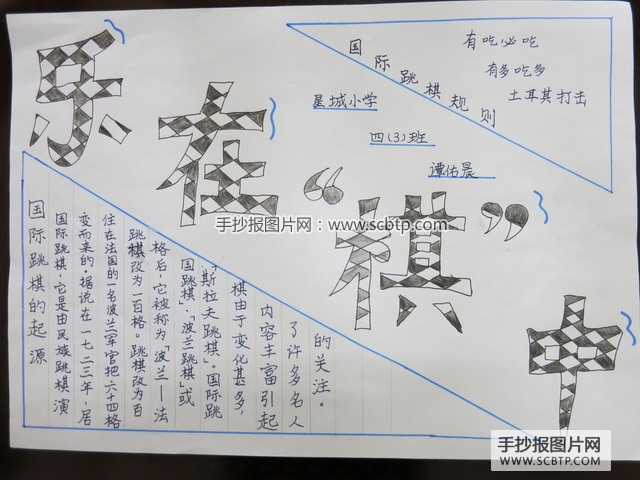 乐在“棋”中
国际跳棋规则
有吃必吃
有多吃多
土耳其打击
星城小学
四(3)班
谭佑晨
国际跳棋的起源
国际跳棋,它是由民族跳棋演
变而来的。据说在一七二三年,居
住在法国的一名波兰军官把六十四格
跳棋改为一百格。跳棋改为百
格后,它被称为「波兰—法
国跳棋」、「波兰跳棋」或
「斯拉夫跳棋」。国际跳
棋由于变化甚多,
内容丰富引起
了许多名人
的关注。
手抄报图片网:www.scbtp.com
手抄报图片网
WWW.SCBTP.COM